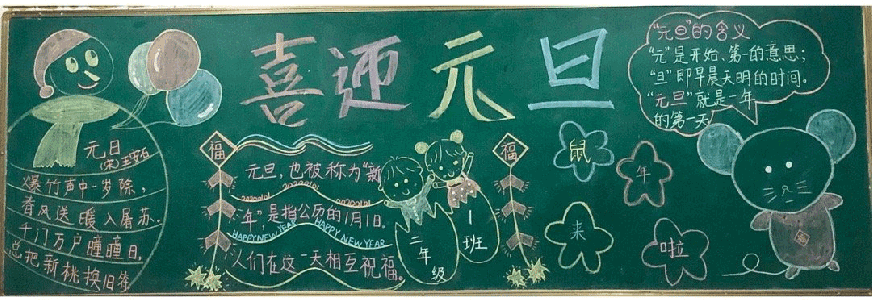 喜迎元旦
元日
(宋)王安石
爆竹声中一岁除，
春风送暖入屠苏。
千门万户曈曈日，
总把新桃换旧符
福
元旦，也被称为"新
年"是指公历的1月1日。
HAPPY NEW YEAR HAPPY NEW YEAR
人们在这一天相互祝福。
二年级
1班
福
鼠
年
来
啦
"元旦"的含义
"元"是开始、第一的意思；
"旦"即早晨天明的时间。
"元旦"就是一年
的第一天